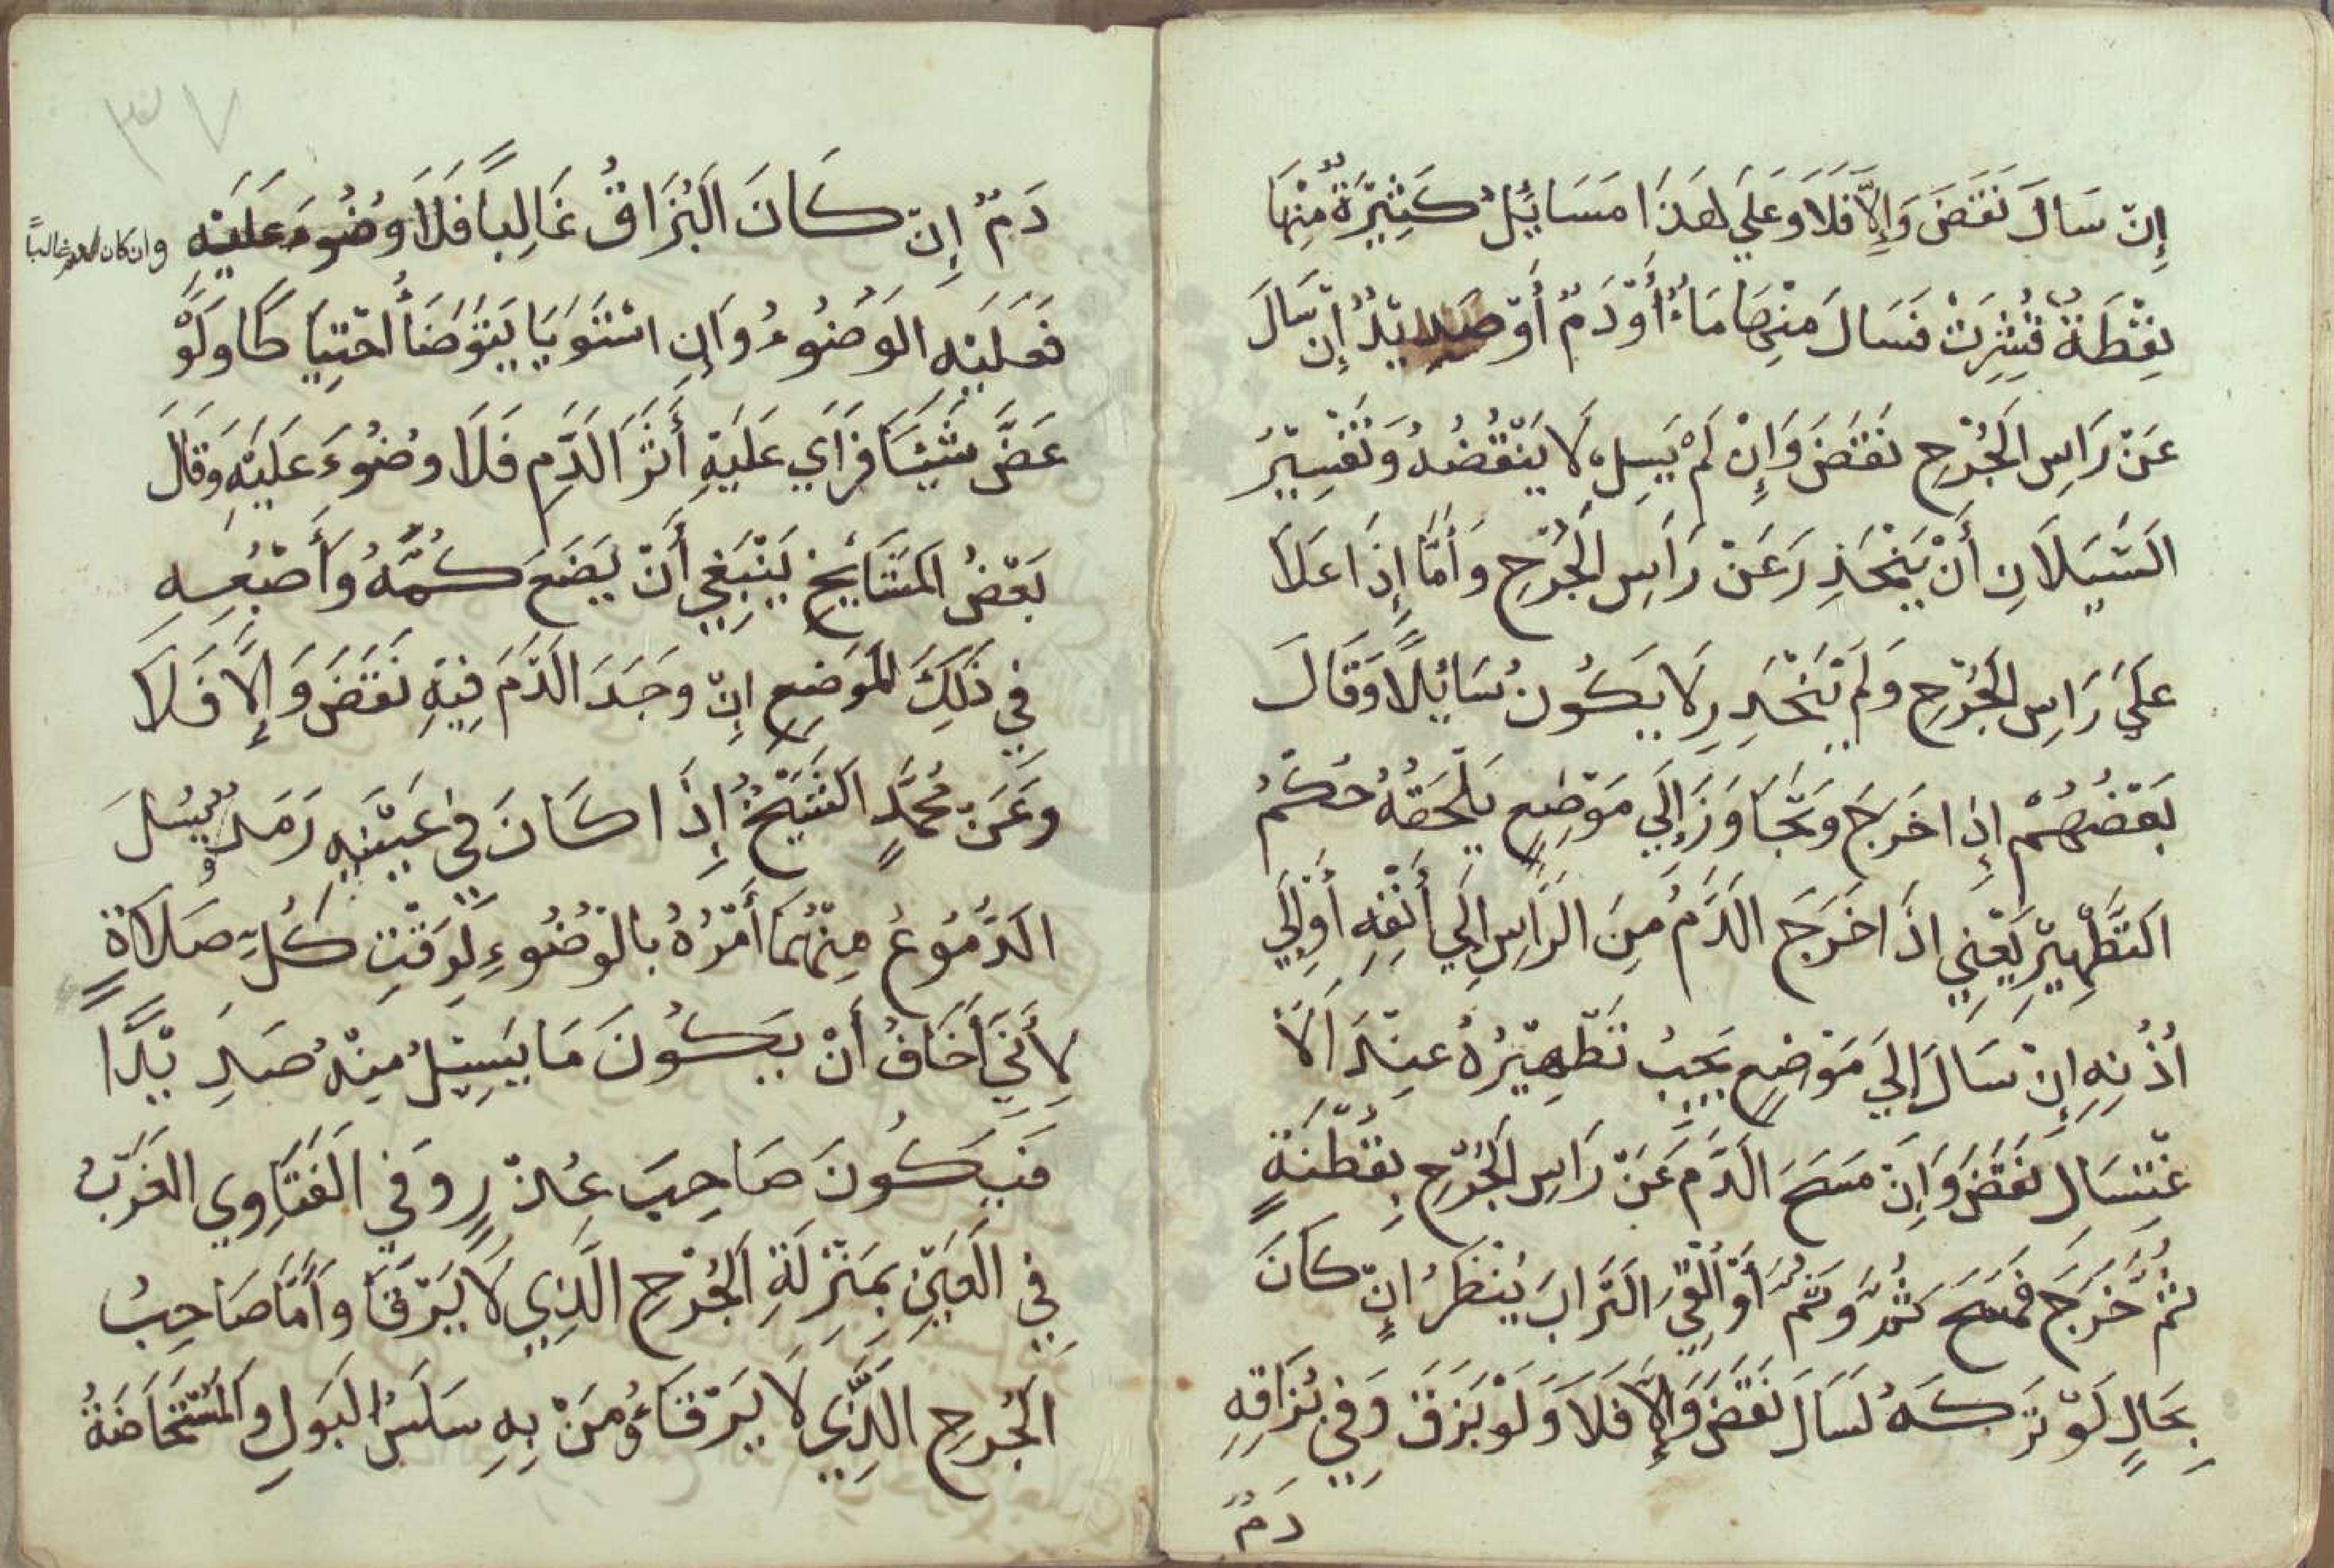 إِنْ سَالَ نَقَضَ وَإِلَّا فَلَا وَعَلَي هَذَا مَسَائِلُ كَثِيْرَةٌ مِنْهَا
نِفْطَةٌ قُشِرَتْ فَسَالَ مِنْهَا مَاءٌ أَوْ دَمٌ أَوْ صَدِيْدٌ إِنْ سَالَ
عَنْ رَاسِ الْجُرْحِ نَقَضَ وَإِنْ لَمْ يَسِلْ لَا يَنْقُضُهُ وَتَفْسِيْرُ
السَّيَلَانِ أَنْ يَنْحَدِرَ عَنْ رَاسِ الْجُرْحِ وَأَمَّا إِذَا عَلَا
عَلَي رَاسِ الْجُرْحِ وَلَمْ يَنْحَدِرْ لَا يَكُونُ سَائِلًا وَقَالَ
بَعْضُهُمْ إِذَا خَرَجَ وَتَجَاوَزَ إِلَي مَوْضِعٍ يَلْحَقُهُ حُكْمُ
التَّطْهِيْرِ يَعْنِي اذَا خَرَجَ الدَّمُ مِنَ الرَّاسِ إِلَي أَنْفِهِ أَوْ إِلَي
أُذُنِهِ إِنْ سَالَ إِلَي مَوْضِعٍ يَجِبُ تَطْهِيْرُهُ عِنْدَ الْا
غْتِسَالِ نَقَضَ وَإِنْ مَسَحَ الدَّمَ عَنْ رَاسِ الْجُرْحِ بِقُطْنَةٍ
ثُمَّ خَرَجَ فَمَسَحَ ثُمَّ وَثُمَّ أَوْ أُلْقِيَ التُّرَابَ يُنْظَرُ انْ كَانَ
بِحَالٍ لَوْ تَرَكَهُ لَسَالَ نَقَضَ وَإِلَّا فَلَا وَلَوْ بَزَقَ وَفِي بُزَاقِهِ
دَمٌ
٣٧
دَمٌ إِنْ كَانَ الْبُزَاقُ غَالِبًا فَلَا وُضُوءَ عَلَيْهِ وان كان الدم غالباً
فَعَلَيْهِ الْوُضُوءُ وَإِنِ اسْتَوَيَا يَتَوَضَأُ احْتِيَا طًا وَلَوْ
عَضَّ شَيْئًا فَرَأَي عَلَيْهِ أَثَرَ الدَّمِ فَلَا وُضُوءَ عَلَيْهِ وَقَالَ
بَعْضُ الْمَشَايِخِ يَنْبَغِي أَنْ يَضَعَ كُمَّهُ وَأَصْبُعِهِ
فِي ذَلِكَ الْمَوْضِعِ إِنْ وَجَدَ الدَّمَ فِيْهِ نَقَضَ وَإِلَّا فَلَا
وَعَنْ مُحَمَّدٍ الشَّيْخُ إِذَا كَانَ فِي عَيْنَيْهِ رَمَدٌ يُسِيْلُ
الدُّمُوعُ مِنْهُمَا أَمْرُهُ بِالْوُضُوءِ لِوَقْتِ كُلِّ صَلَاةٍ
لِأَنِّي أَخَافُ أَنْ يَكُونَ مَا يَسِيْلُ مِنْهُ صَدِيْدًا
فَيَكُونَ صَاحِبَ عُذْرٍ وَفِي الْفَتَاوِي الْغَرْبُ
فِي الْعَيْنِ بِمَنْزِلَةِ الْجُرْحِ الَّذِي لَا يَرْقَا وَأَمَّا صَاحِبُ
الْجُرْحِ الَّذِي لَا يَرْقَاءُ وَمَنْ بِهِ سَلَسُ الْبَوْلِ وَالْمُسْتَحَاضَةُ